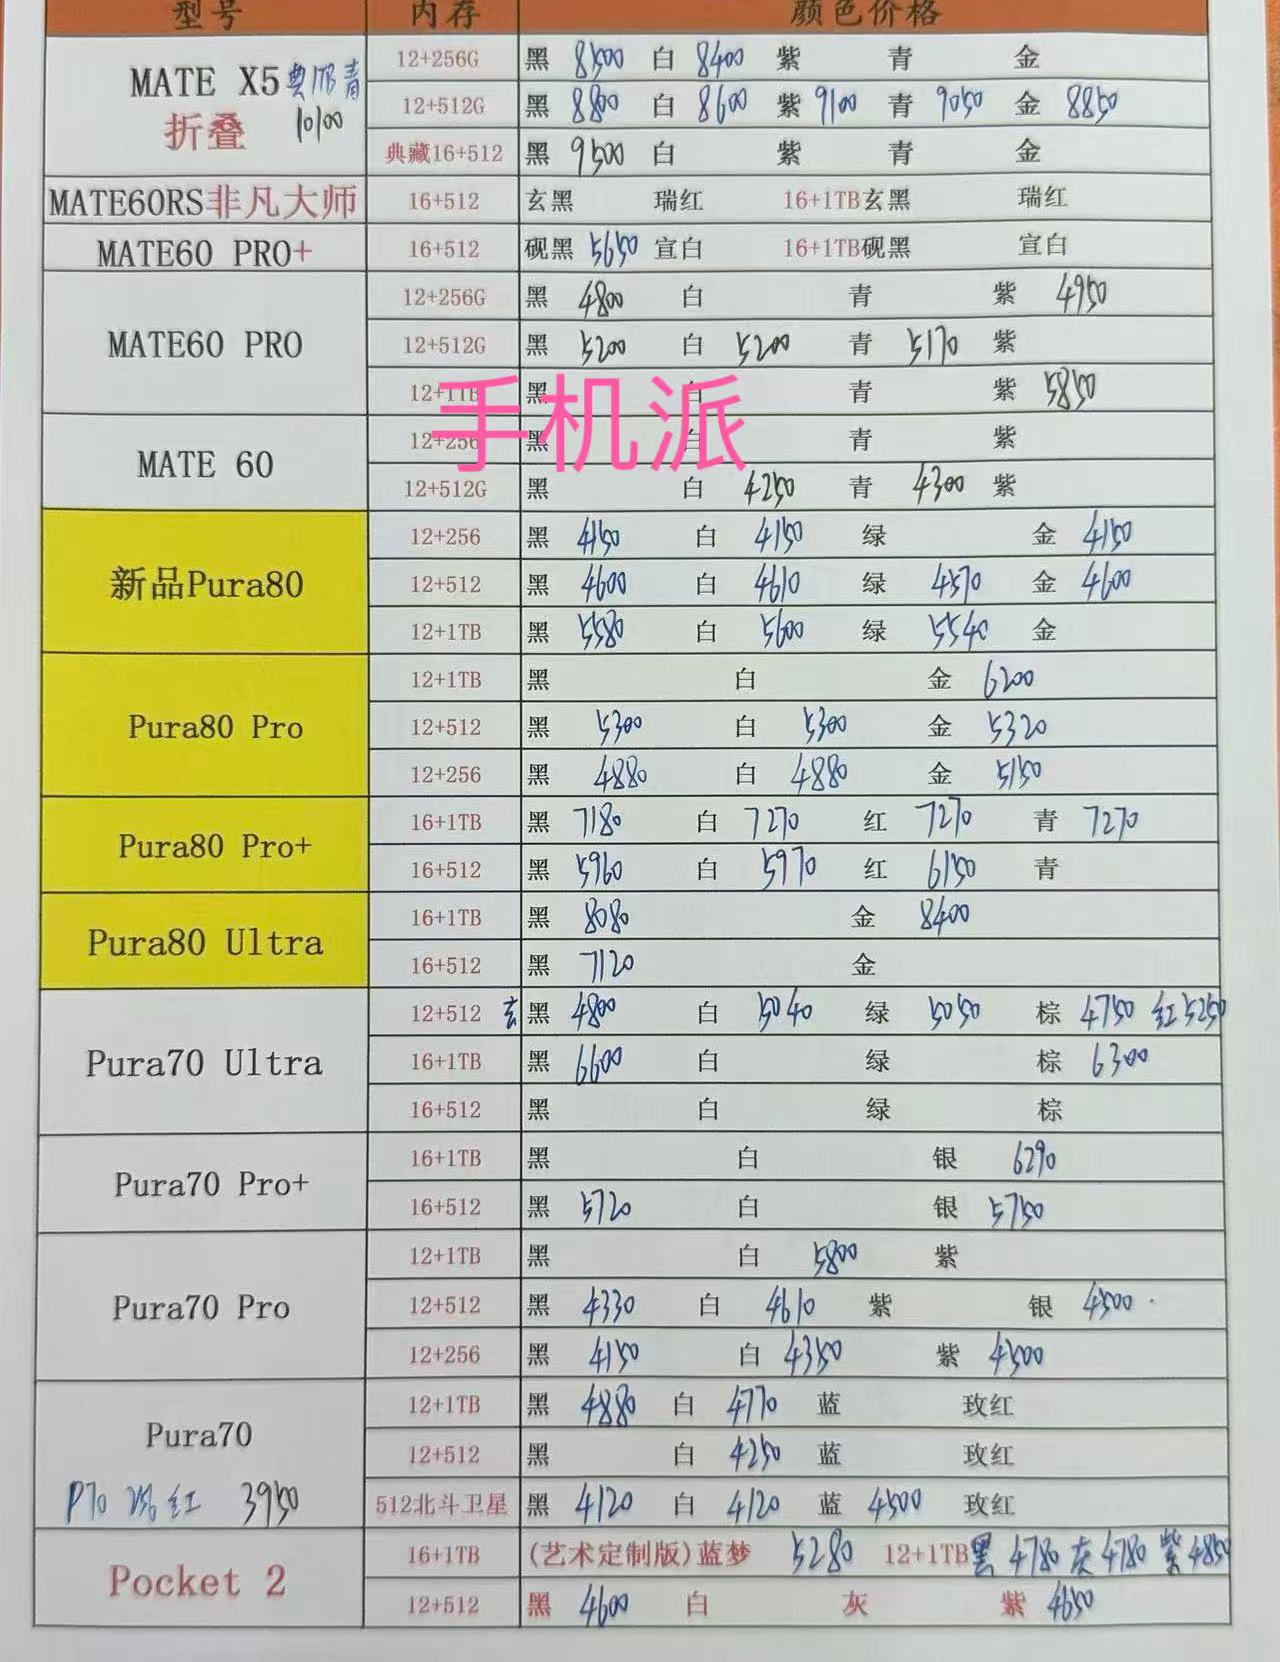 型号 内存 颜色价格
MATE X5 典1TB青 12+256G 黑 8500 白 8400 紫 青 金
折叠 10100 12+512G 黑 8800 白 8600 紫 9100 青 9050 金 8850
典藏16+512 黑 9500 白 紫 青 金
MATE60RS非凡大师 16+512 玄黑 瑞红 16+1TB玄黑 瑞红
MATE60 PRO+ 16+512 砚黑 5650 宣白 16+1TB砚黑 宣白
12+256G 黑 4800 白 青 紫 4950
MATE60 PRO 12+512G 黑 5200 白 5200 青 5170 紫
12+1TB 黑 白 青 紫 5850
手机派
MATE 60 12+256 黑 白 青 紫
12+512G 黑 白 4250 青 4300 紫
12+256 黑 4150 白 4150 绿 金 4150
新品Pura80 12+512 黑 4600 白 4610 绿 4570 金 4600
12+1TB 黑 5580 白 5600 绿 5540 金
12+1TB 黑 白 金 6200
Pura80 Pro 12+512 黑 5300 白 5300 金 5320
12+256 黑 4880 白 4880 金 5150
Pura80 Pro+ 16+1TB 黑 7180 白 7270 红 7270 青 7270
16+512 黑 5960 白 5970 红 6150 青
Pura80 Ultra 16+1TB 黑 8080 金 8400
16+512 黑 7120 金
12+512 玄黑 4800 白 5040 绿 5050 棕 4750 红5250
Pura70 Ultra 16+1TB 黑 6600 白 绿 棕 6300
16+512 黑 白 绿 棕
Pura70 Pro+ 16+1TB 黑 白 银 6290
16+512 黑 5720 白 银 5750
12+1TB 黑 白 5800 紫
Pura70 Pro 12+512 黑 4330 白 4610 紫 银 4500
12+256 黑 4150 白 4350 紫 4500
12+1TB 黑 4880 白 4770 蓝 玫红
Pura70 12+512 黑 白 4250 蓝 玫红
P70 256 红 3950 512北斗卫星 黑 4120 白 4120 蓝 4500 玫红
Pocket 2 16+1TB (艺术定制版)蓝梦 5280 12+1TB黑 4780 灰 4780 紫 4850
12+512 黑 4600 白 灰 紫 4650